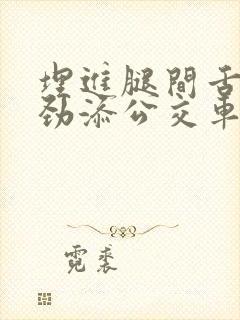 埋進腿間舌
劲添公交車
霓裘